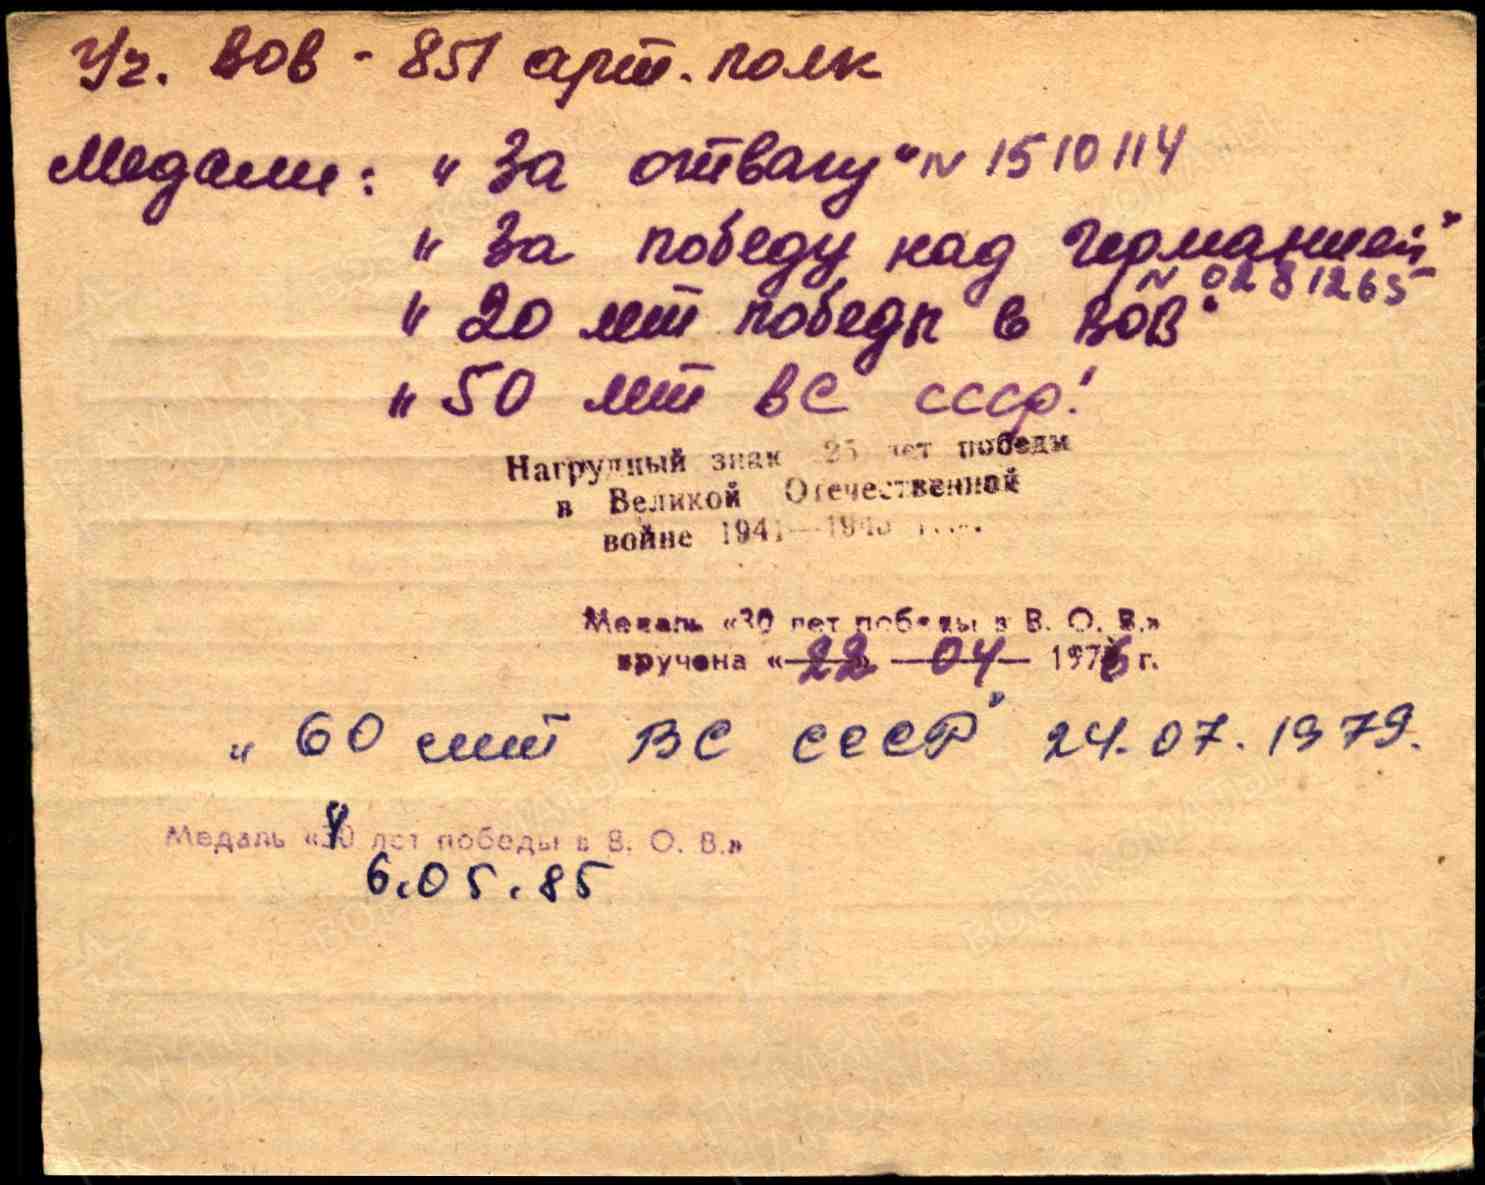 Уч. ВОВ - 851 арт. полк
Медали: „За отвагу" N 1510114
„За победу над Германией"
N 0281265
„20 лет победы в ВОВ"
„50 лет ВС СССР"
Нагрудный знак 25 лет победы
в Великой Отечественной
войне 1941—1945
Медаль «30 лет победы в В. О. В.»
вручена «22» 04 1976 г.
„60 лет ВС СССР" 24.07.1979.
Медаль «40 лет победы в В. О. В.»
6.05.85